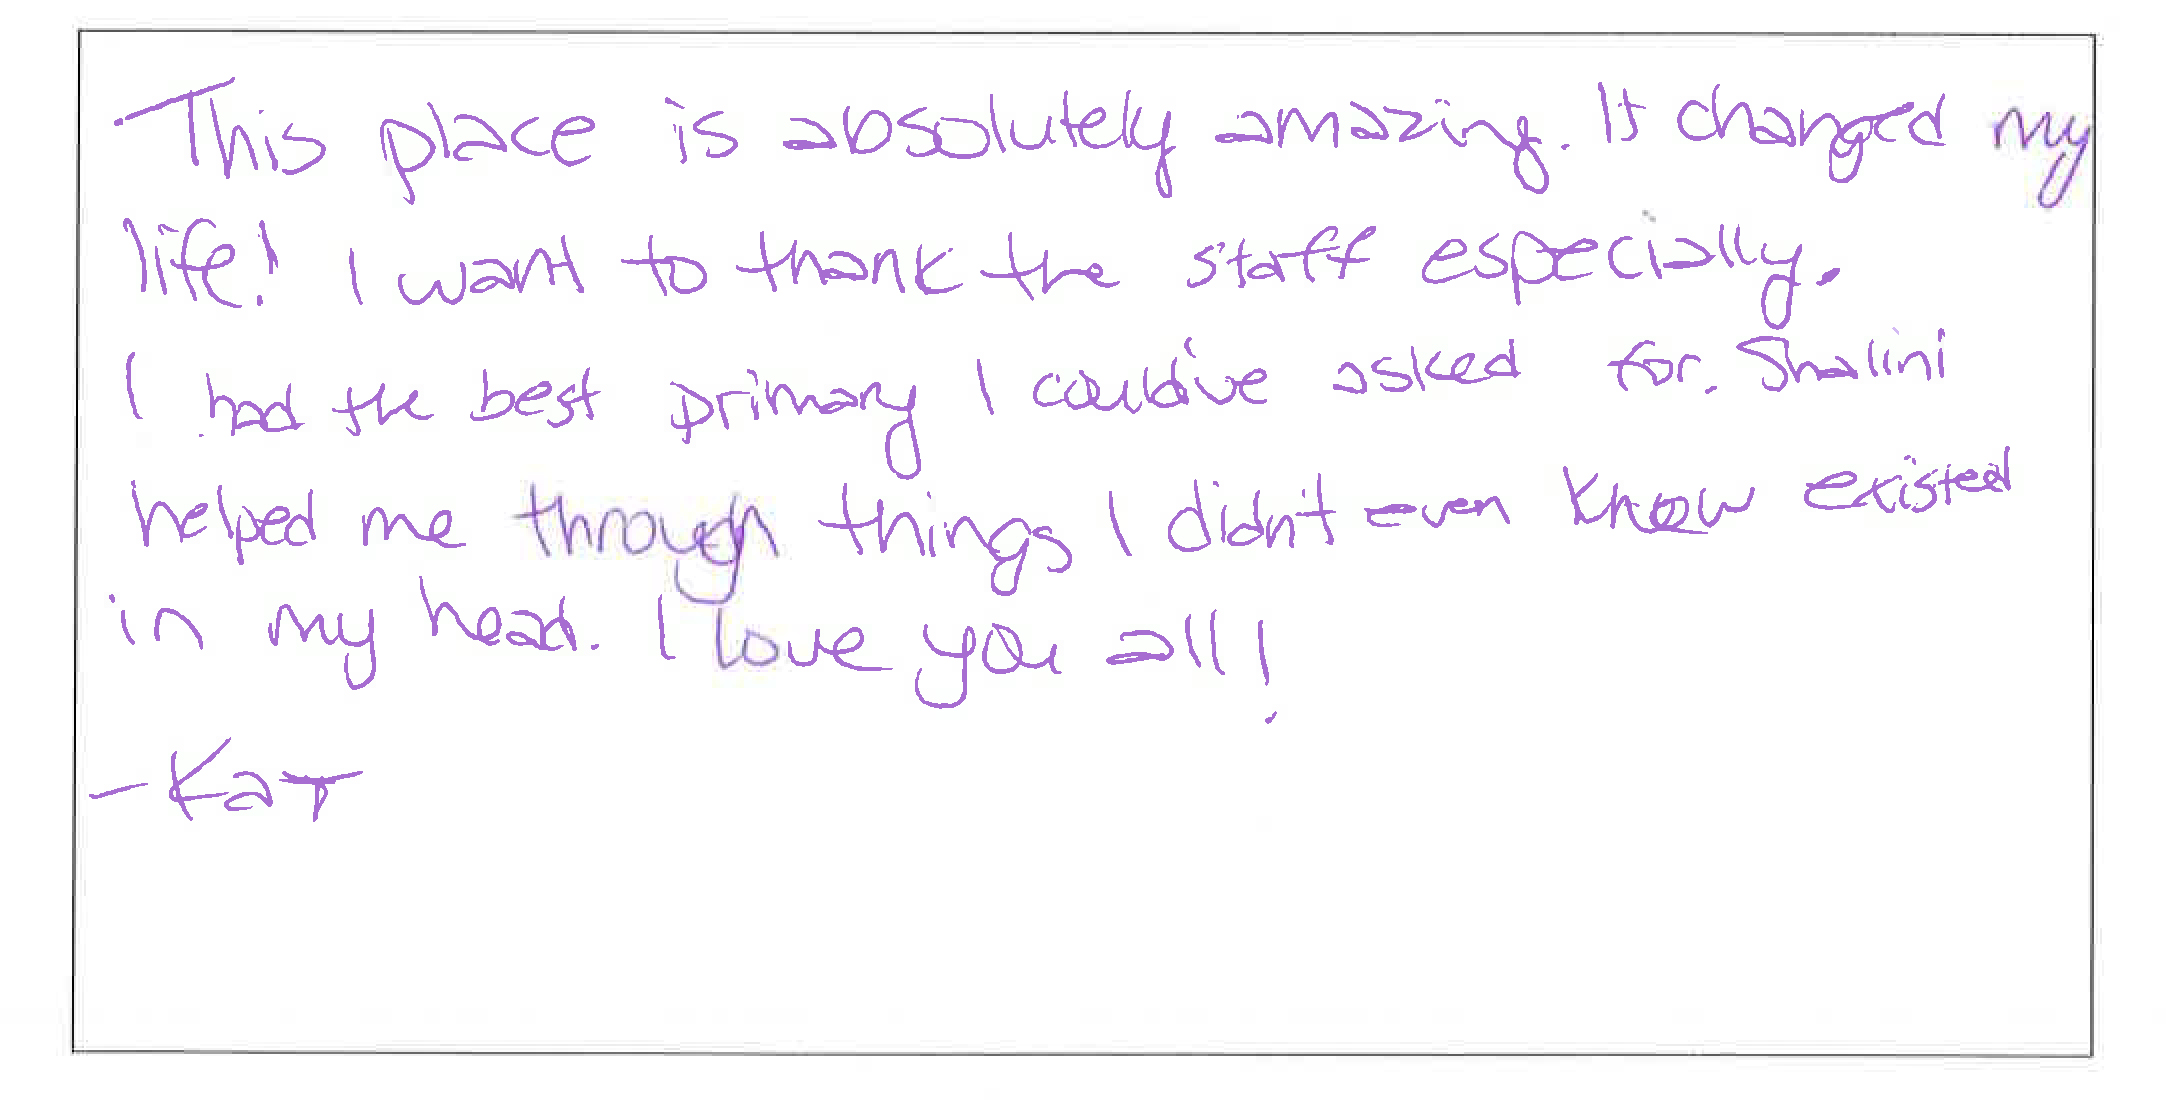 This place is absolutely amazing. It changed my
life! I want to thank the staff especially.
I had the best primary I could've asked for. Shalini
helped me through things I didn't even know existed
in my head. I love you all!
-Kat